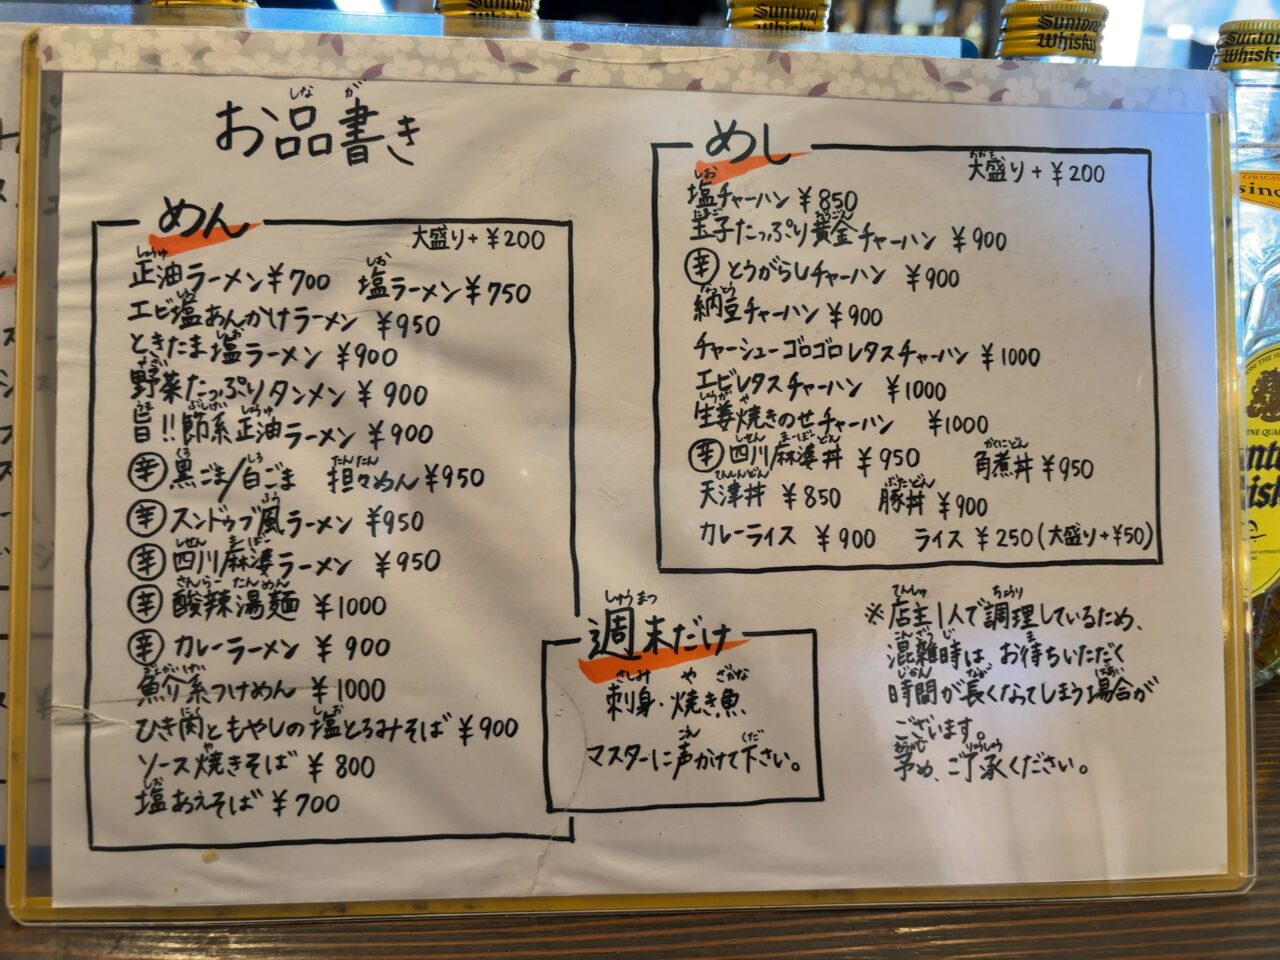 お品書き
めん
大盛り+¥200
正油ラーメン ¥700 塩ラーメン ¥750
エビ塩あんかけラーメン ¥950
ときたま塩ラーメン ¥900
野菜たっぷりタンメン ¥900
旨!!節系正油ラーメン ¥900
辛 黒ごま/白ごま 担々めん ¥950
辛 スンドゥブ風ラーメン ¥950
辛 四川麻婆ラーメン ¥950
辛 酸辣湯麺 ¥1000
辛 カレーラーメン ¥900
魚介系つけめん ¥1000
ひき肉ともやしの塩とろみそば ¥900
ソース焼きそば ¥800
塩あえそば ¥700
めし
大盛り+¥200
塩チャーハン ¥850
玉子たっぷり黄金チャーハン ¥900
辛 とうがらしチャーハン ¥900
納豆チャーハン ¥900
チャーシューゴロゴロレタスチャーハン ¥1000
エビレタスチャーハン ¥1000
生姜焼きのせチャーハン ¥1000
辛 四川麻婆丼 ¥950 角煮丼 ¥950
天津丼 ¥850 豚丼 ¥900
カレーライス ¥900 ライス ¥250(大盛り+¥50)
週末だけ
刺身・焼き魚
マスターに声かけて下さい。
※店主1人で調理しているため、
混雑時は お待ちいただく
時間が長くなってしまう場合が
ございます。
予め、ご了承ください。
Suntory
Whisky
Suntory
Whisky